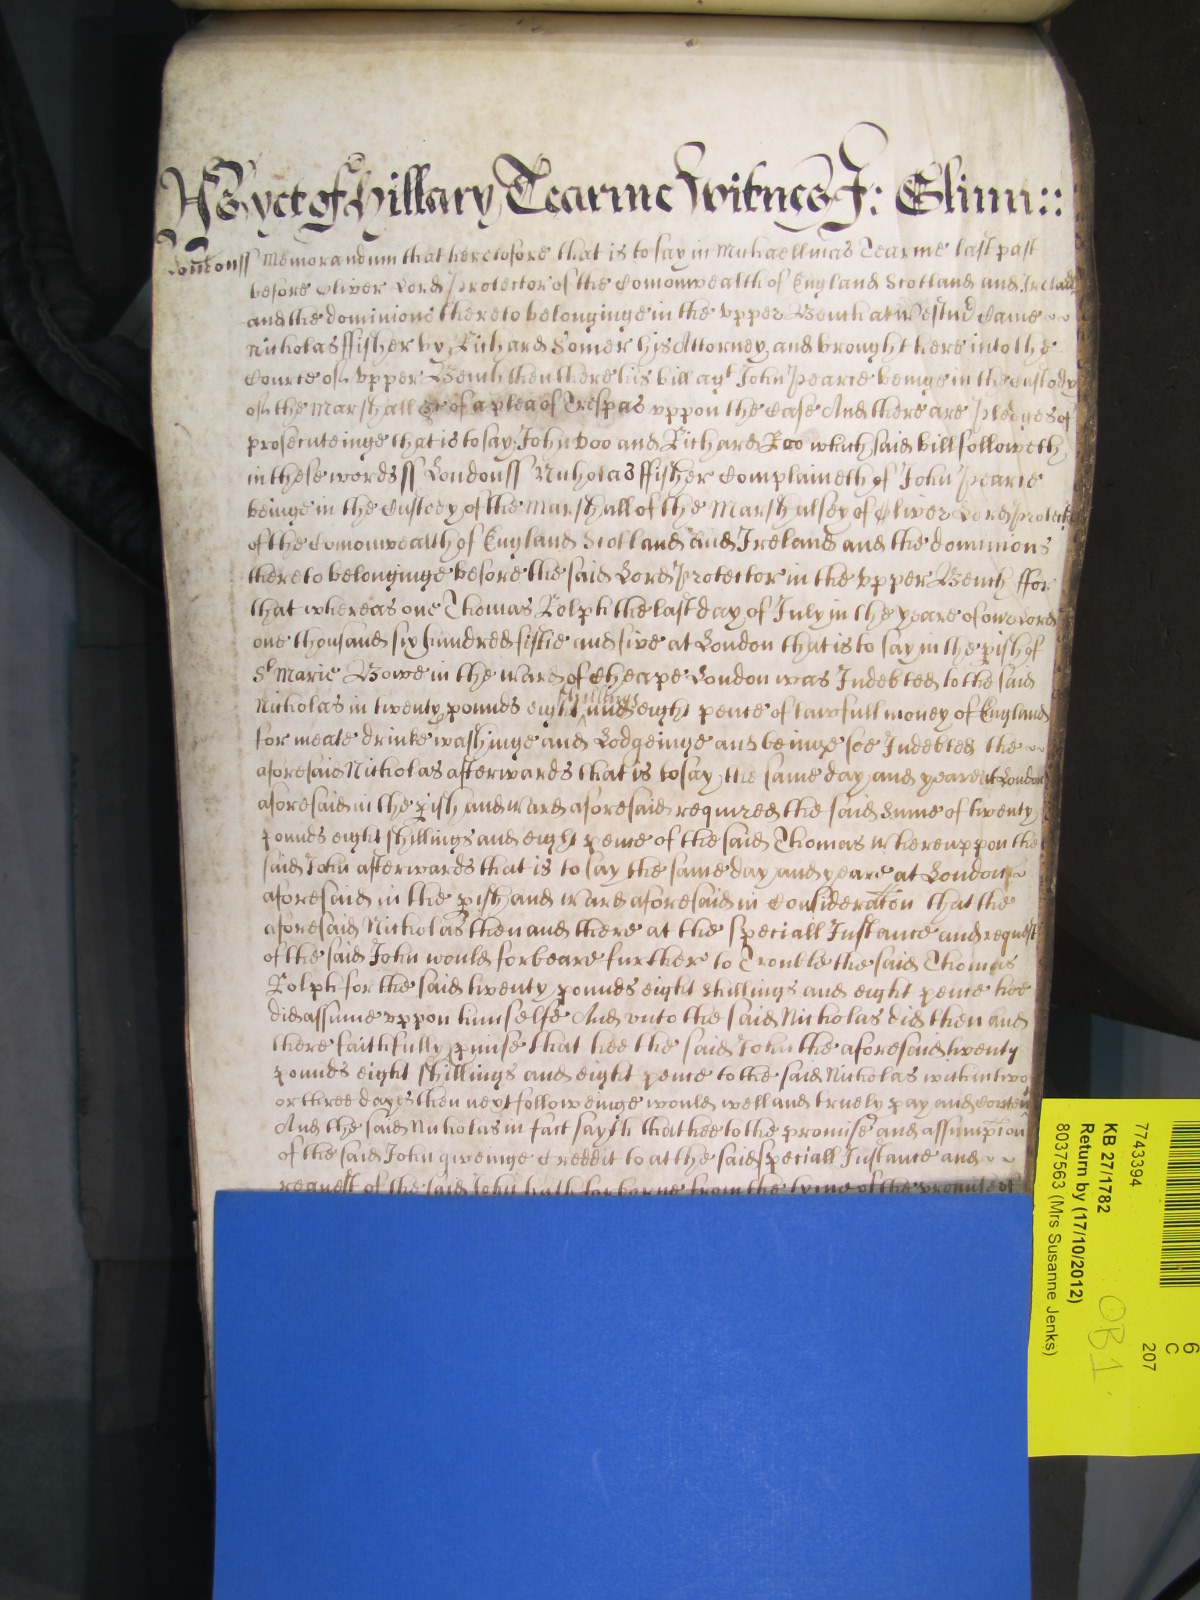 As yet of Hillary Tearme Witnes J: Glinn::
Londonss Memorandum that heretofore that is to say in Michaellmas Tearme last past
before Oliver Lord Protector of the Comonwealth of England Scotland and Ireland
and the dominions thereto belonginge in the vpper Bench at Westmr Came
Nicholas ffisher by Richard Somer his Attorney and brought here into the
Courte of vpper Bench then there his bill agt John Pearce beinge in the Custody
of the Marshall &c of a plea of Trespas vppon the Case And there are pledges of
prosecuteinge that is to say John Doo and Richard Roo which said bill followeth
in these words ss Londonss Nicholas ffisher Complaineth of John Pearce
beinge in the Custody of the Marshall of the Marshalsey of Oliver Lord Protector
of the Comonwealth of England Scotland and Ireland and the dominions
thereto belonginge before the said Lord Protector in the vpper Bench ffor
that whereas one Thomas Rolph the last day of July in the yeare of our Lord
one thousand six hundred fiftie and five at London that is to say in the pish of
St Marie Bowe in the ward of Cheape London was Indebted to the said
Nicholas in twenty pounds eight shillings and eight pence of lawfull money of England
for meate drinke washinge and Lodgeinge and beinge soe Indebted the
aforesaid Nicholas afterwards that is to say the same day and yeare at London
aforesaid in the pish and ward aforesaid required the said Sume of twenty
pounds eight shillings and eight pence of the said Thomas Wherevppon the
said John afterwards that is to say the same day and yeare at London
aforesaid in the pish and ward aforesaid in Consideration that the
aforesaid Nicholas then and there at the speciall Instance and request
of the said John would forbeare further to Trouble the said Thomas
Rolph for the said twenty pounds eight shillings and eight pence hee
did assume vppon himselfe And vnto the said Nicholas did then and
there faithfully pmise that hee the said John the aforesaid twenty
pounds eight shillings and eight pence to the said Nicholas within two
or three dayes then next followeinge would well and truely pay and Content
And the said Nicholas in fact sayth that hee to the promise and assumption
of the said John giveinge Creddit to at the said speciall Instance and
request of the said John hath forborne from the tyme of the promise of
7743394
KB 27/1782
Return by (17/10/2012)
8037563 (Mrs Susanne Jenks)
6
C
207
OB1